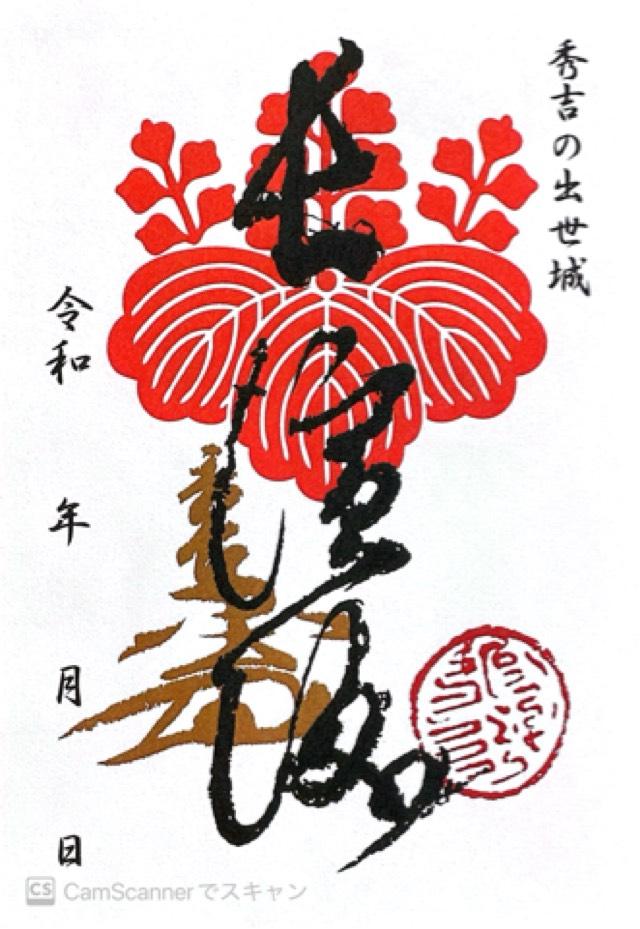 秀吉の出世城
長濱城
令和 年 月 日
CS CamScannerでスキャン